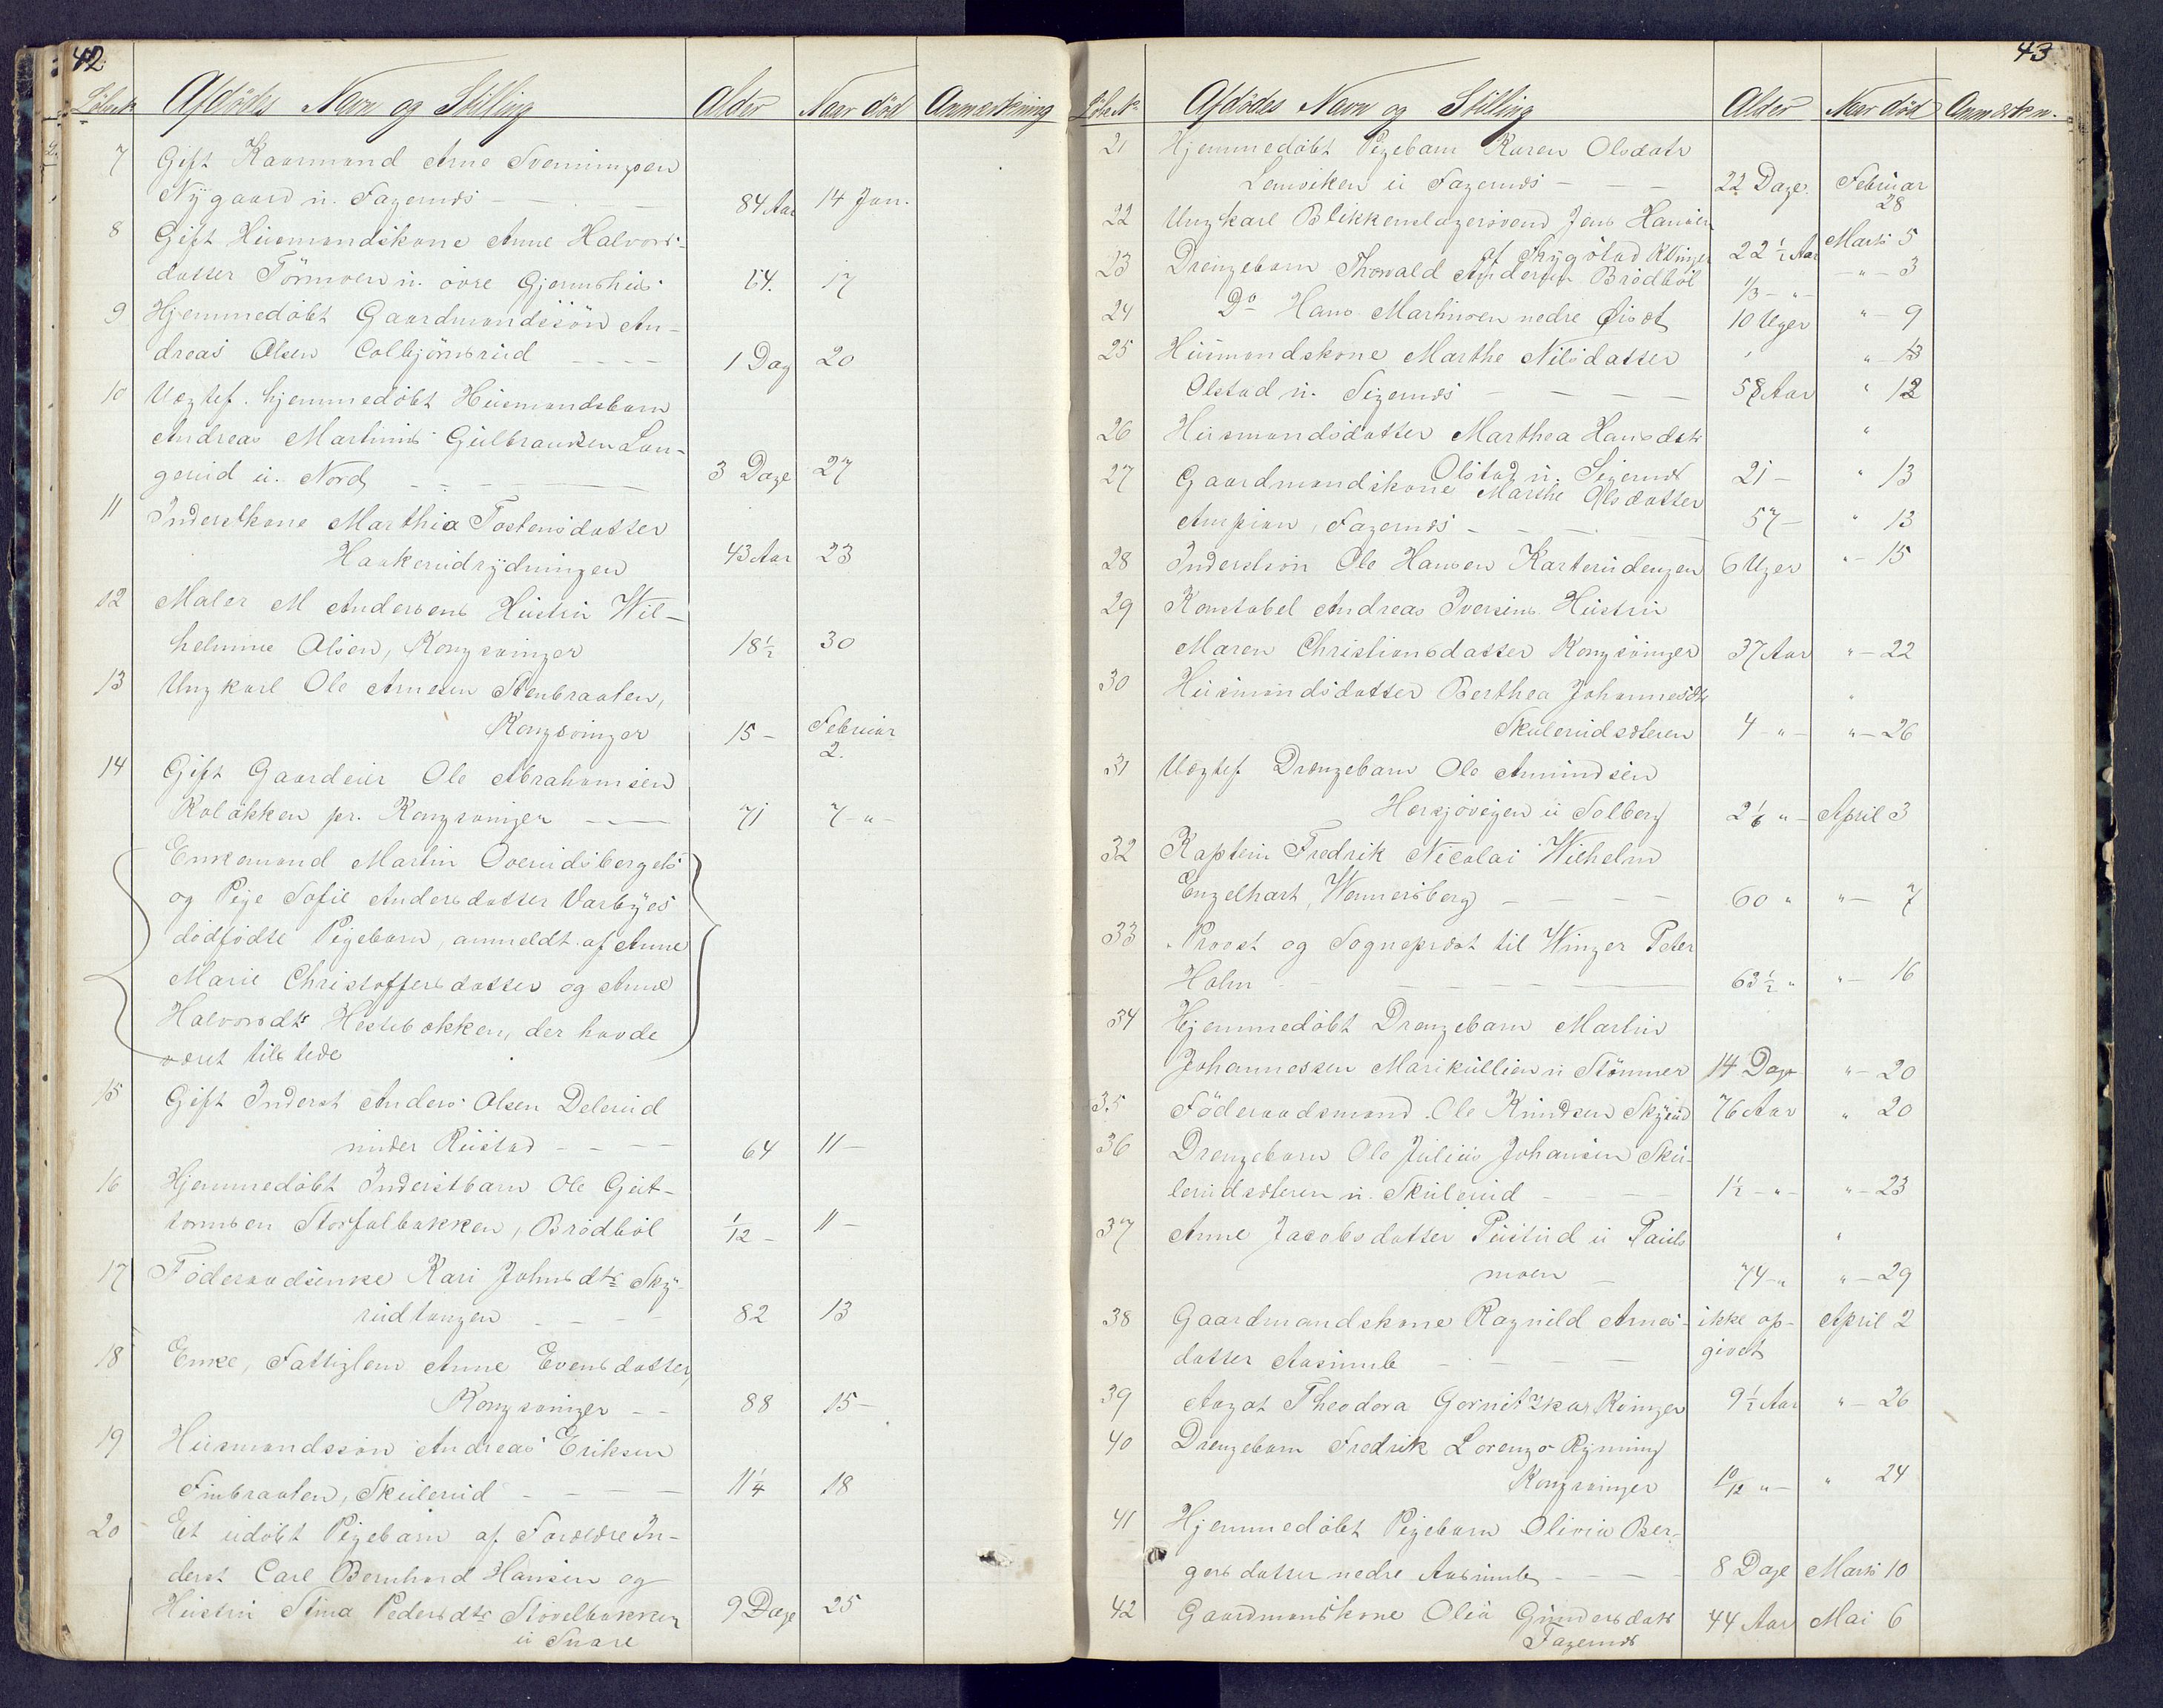 42
Løbe№ Afdødes Navn og Stilling Alder Naar død Anmærkning
7 Gift Kaarmand Arne Svenningsen
Nygaard u. Fagernæs 84 Aar 14 Jan.
8 Gift Husmandskone Anne Halvors-
datter Törmoen u. øvre Gjermshus 64. 17
9 Hjemmedøbt Gaardmandssön An-
dreas Olsen Colbjörnsrud 1 Dag 20
10 Uægtef. hjemmedøbt Husmandsbarn
Andreas Martinus Gulbrandsen Lan-
gerud u. Nord 3 Dage 27
11 Inderstkone Marthia Tostensdatter
Haakerudrydningen 43 Aar 23
12 Maler M Andersens Hustru Wil-
helmine Olsen, Kongsvinger 18½ 30
13 Ungkarl Ole Arnesen Stenbraaten,
Kongsvinger 15 – Februar 2.
14 Gift Gaardeier Ole Abrahamsen
Koløkken pr. Kongsvinger 71 7 – " –
Enkemand Martin Overudsbergets
og Pige Sofie Andersdatter Varbyes
dødfødte Pigebarn, anmeldt af Anne
Marie Christoffersdatter og Anne
Halvorsdtr Hestebækken, der havde
været tilstede
15 Gift Inderst Anders Olsen Delerud
under Rustad 64 11 –
16 Hjemmedøbt Inderstbarn Ole Geit-
tomsen Storfalbakken, Brødbøl 1/12 – 11 –
17 Föderaadsenke Kari Johnsdtr Sky-
rudtangen 82 13
18 Enke, Fattiglem Anne Evensdatter,
Kongsvinger 88 15 –
19 Husmandssøn Andreas Eriksen
Finbraaten, Skulerud 11¼ 18
20 Et udøbt Pigebarn af Forældre In-
derst Carl Bernhard Hansen og
Hustru Stina Pedersdtr Støvelbakken 9 Dage 25
u Snare
43
Løbe № Afdødes Navn og Stilling Alder Naar død Anmærkn.
21 Hjemmedøbt Pigebarn Karen Olsdatr
Lenviken u Fagernæs 22 Dage. Februar 28
22 Ungkarl Blikkenslagersvend Jens Hansen
af Skygstad KVinger 22½ Aar Marts 5
23 Drengebarn Thorvald Andersen Brødbøl 1/3 – " – – " – 3
24 Do Hans Martinsen nedre Øiset 10 Uger " – 9
25 Husmandskone Marthe Nilsdatter " – 13
Olstad u. Sigernæs 58 Aar " 12
26 Husmandsdatter Marthea Hansdtr
Olstad u. Sigernæs 21 – " 13
27 Gaardmandskone Marthe Olsdatter
Ampian, Fagernæs 57 – " 13
28 Inderstsøn Ole Hansen Karterudengen 6 Uger " – 15
29 Konstabel Andreas Iversens Hustru
Maren Christiansdatter Kongsvinger 37 Aar " – 22
30 Husmandsdatter Berthea Johannesdtr
Skulerudsæteren 4 – " – " – 26
31 Uægtef. Drengebarn Ole Amundsen
Hersjøveien u Solberg 2 1/6 " – April 3
32 Kaptein Fredrik Nicolai Wilhelm
Engelhart, Wennersberg 60 " " – 7
33 Provst og Sognepræst til Winger Peter
Holm 63½ " " – 16
34 Hjemmedøbt Drengebarn Martin
Johannessen Marikullien u Stömner 14 Dage " – 20
35 Föderaadsmand Ole Knudsen Skyrud 76 Aar " 20
36 Drengebarn Ole Julius Johansen Sku-
lerudsæteren u. Skulerud 1½ – " – " – 23
37 Anne Jacobsdatter Pustud u Pauls
moen 74 – " " – 29
38 Gaardmandskone Ragnild Arnes- ikke op- April 2
datter Aasumb givet
39 Angot Theodora Gornitzkas Kvinger 9½ Aar " – 26
40 Drengebarn Fredrik Lorenzo Rynning
Kongsvinger 10/12 " – " 24
41 Hjemmedøbt Pigebarn Olivia Ber-
gersdatter nedre Aasumb 8 Dage Marts 10
42 Gaardmandskone Olea Gundersdatr 44 Aar Mai 6
Fagernæs